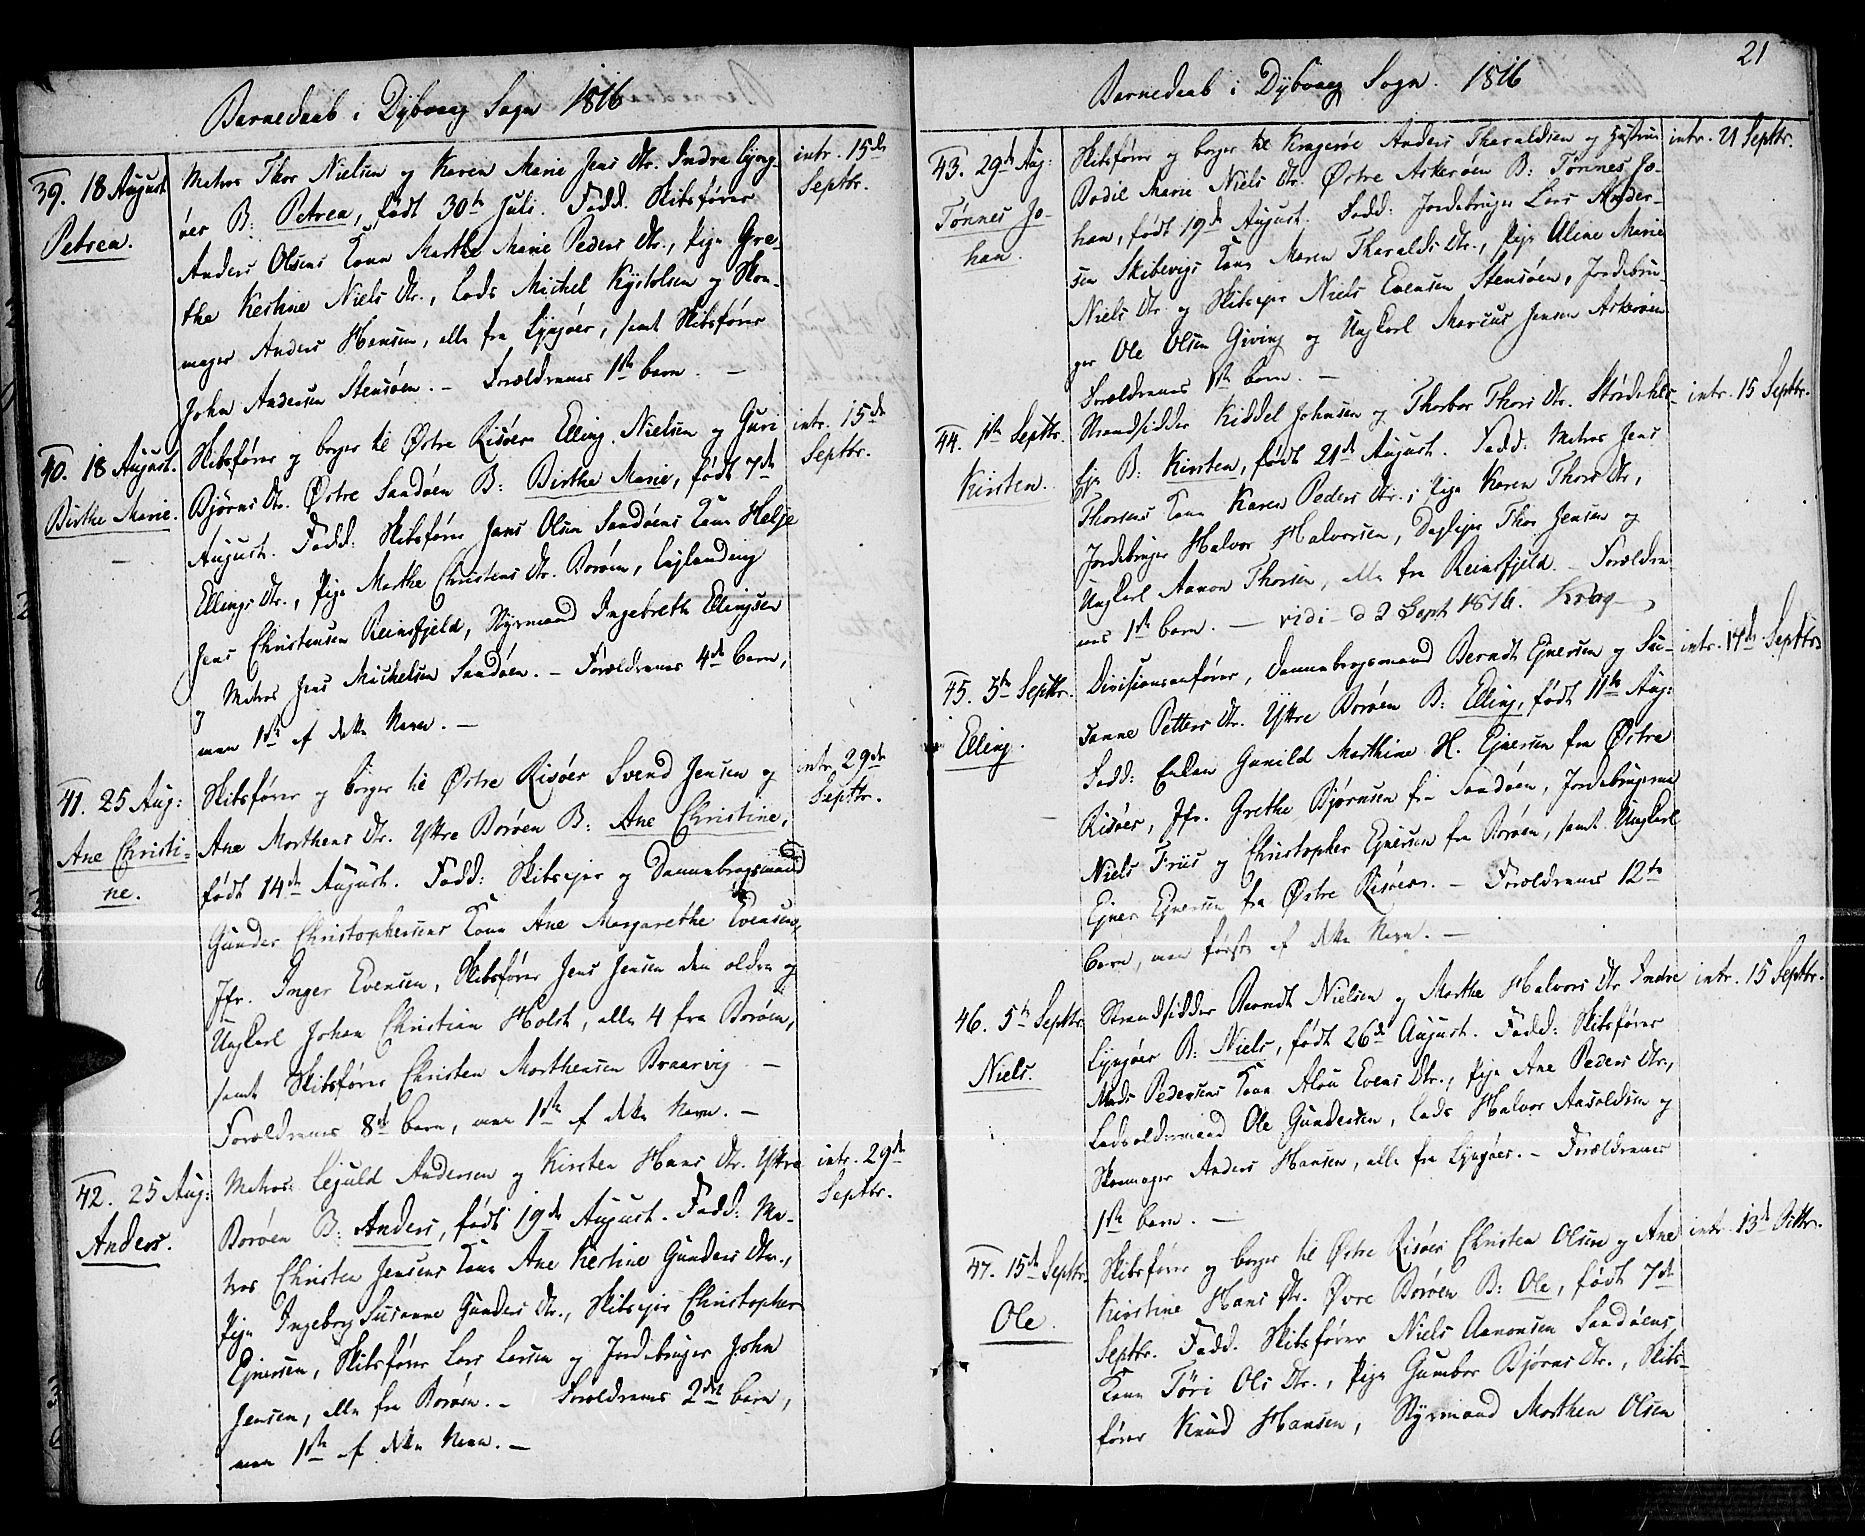 Barnedaab i Dybvaag Sogn 1816
39. 18 August
Petrea.
Matros Thor Nielsen og Karen Marie Jens Dtr. Indre Lyng-
öer B: Petrea, født 30te Juli. Fadd. Skibsfører
Anders Olsens Kone Marthe Marie Peders Dtr., Pige Gre-
the Kestine Niels Dtr., Lods Michel Kystolsen og Skoe-
mager Anders Hansen, alle fra Lyngöer, samt Skibsfører
John Andersen Stensöen. – Forældrenes 1ste barn. –
intr. 15de
Septbr.
40. 18 August.
Birthe Marie.
Skibsfører og borger til Østre Risöer Elling Nielsen og Guri
Bjørns Dtr. Østre Sandöen B: Birthe Marie, født 7de
August. Fadd: Skibsfører Jens Olsen Sandöens Kone Helje
Ellings Dtr., Pige Marthe Christens Dtr. Boröen,
Jens Christensen Reinsfjeld, Styrmand Ingebreth Ellingsen
og Matros Jens Michelsen Sandöen. – Forældrenes 4de barn,
men 1ste af dette Navn. –
intr. 15de
Septbr.
41. 25 Aug:
Ane Christi-
ne.
Skibsfører og borger til Østre Risöer Svend Jensen og
Ane Morthens Dtr. Yttre Boröen B: Ane Christine,
født 14de August. Fadd: Skibsejer og Dannebrogsmand
Gunder Christophersens Kone Ane Margarethe Evensen,
Jfr. Inger Evensen, Skibsfører Jens Jensen den eldre og
Ungkarl Johan Christian Holst, alle 4 fra Boröen,
samt Skibsfører Christen Morthensen Braarvig –
Forældrenes 8de barn, men 1ste af dette Navn. –
intr. 29de
Septbr.
42. 25 Aug:
Anders.
Matros Lejuld Andersen og Kirsten Hans Dtr. Yttre
Boröen B: Anders, født 19de August. Fadd: Ma-
tros Christen Jensens Kone Ane Kestine Gunders Dtr.,
Pige Ingeborg Susanne Gunders Dtr., Skibsejer Christopher
Ejnersen, Skibsfører Lars Larsen og Jordebruger John
Jensen, alle fra Boröen. – Forældrenes 2det barn,
men 1ste af dette Navn. –
intr. 29de
Septbr.
21
Barnedaab i Dybvaag Sogn. 1816
43. 29de Aug:
Tønnes Jo-
han.
Skibsfører og borger til Krageröe Anders Tharaldsen og Hustrue
Bodil Marie Niels Dtr. Østre Askeröen B: Tønnes Jo-
han, født 19de August. Fadd: Jordebruger Lars Ander-
sen Skibevigs Kone Maren Tharalds Dtr., Pige Aline Marie
Niels Dtr. og Skibsejer Niels Evensen Stensöen, Jordebru-
ger Ole Olsen Giving og Ungkarl Marcus Jensen Askeröen
Forældrenes 1ste barn. –
intr. 21 Septbr.
44. 1ste Septbr.
Kirsten.
Strandsidder Kiddel Johnsen og Thorbor Thors Dtr.
Eje B: Kirsten, født 21de August. Fadd: Matros Jens
Thorsens Kone Karen Peders Dtr., Pige Karen Thors Dtr,
Jordebruger Halvor Halvorsen, Daglejer Thor Jensen og
Ungkarl Aanon Thorsen, alle fra Reinsfjeld. – Forældre
nes 1ste barn. – vidi d 2 Sept 1816. Krog
intr. 15 Septbr.
45. 5te Septbr.
Elling.
Divisionsanfører, Dannebrogsmand Berndt Ejnersen og Su-
sanne Petters Dtr. Yttre Boröen B: Elling, født 11te Aug:
Fadd: Enken Gunild Marthine H. Ejnersen fra Østre
Risöer, Jfr. Grethe Bjørnsen fra Sandöen, Jordebrugerne
Niels Friis og Christopher Ejnersen fra Boröen, samt Ungkarl
Ejner Ejnersen fra Østre Risöer. – Forældrenes 12te
barn, men første af dette Navn. –
intr. 17de Septbr.
46. 5te Septbr.
Niels.
Strandsidder Berndt Nielsen og Marthe Halvors Dtr Indre
Lyngöer B: Niels, født 26de August. Fadd: Skibsfører
Mads Pedersens Kone Alou Evens Dtr., Pige Ane Peders Dtr.,
Lodsoldermand Ole Gundersen, Lods Halvor Aasoldsen og
Skoemager Anders Hansen, alle fra Lyngöer. – Forældrenes
1ste barn. –
intr. 15 Septbr.
47. 15de Septbr.
Ole.
Skibsfører og borger til Østre Risöer Christen Olsen og Ane
Kirstine Hans Dtr. Øvre Boröen B: Ole, født 7de
Septbr. Fadd. Skibsfører Niels Aanonsen Sandöens
Kone Töri Ols Dtr., Pige Gumbor Bjørns Dtr., Skibs-
fører Knud Hansen, Styrmand Morthen Olsen
intr. 13de Octbr.